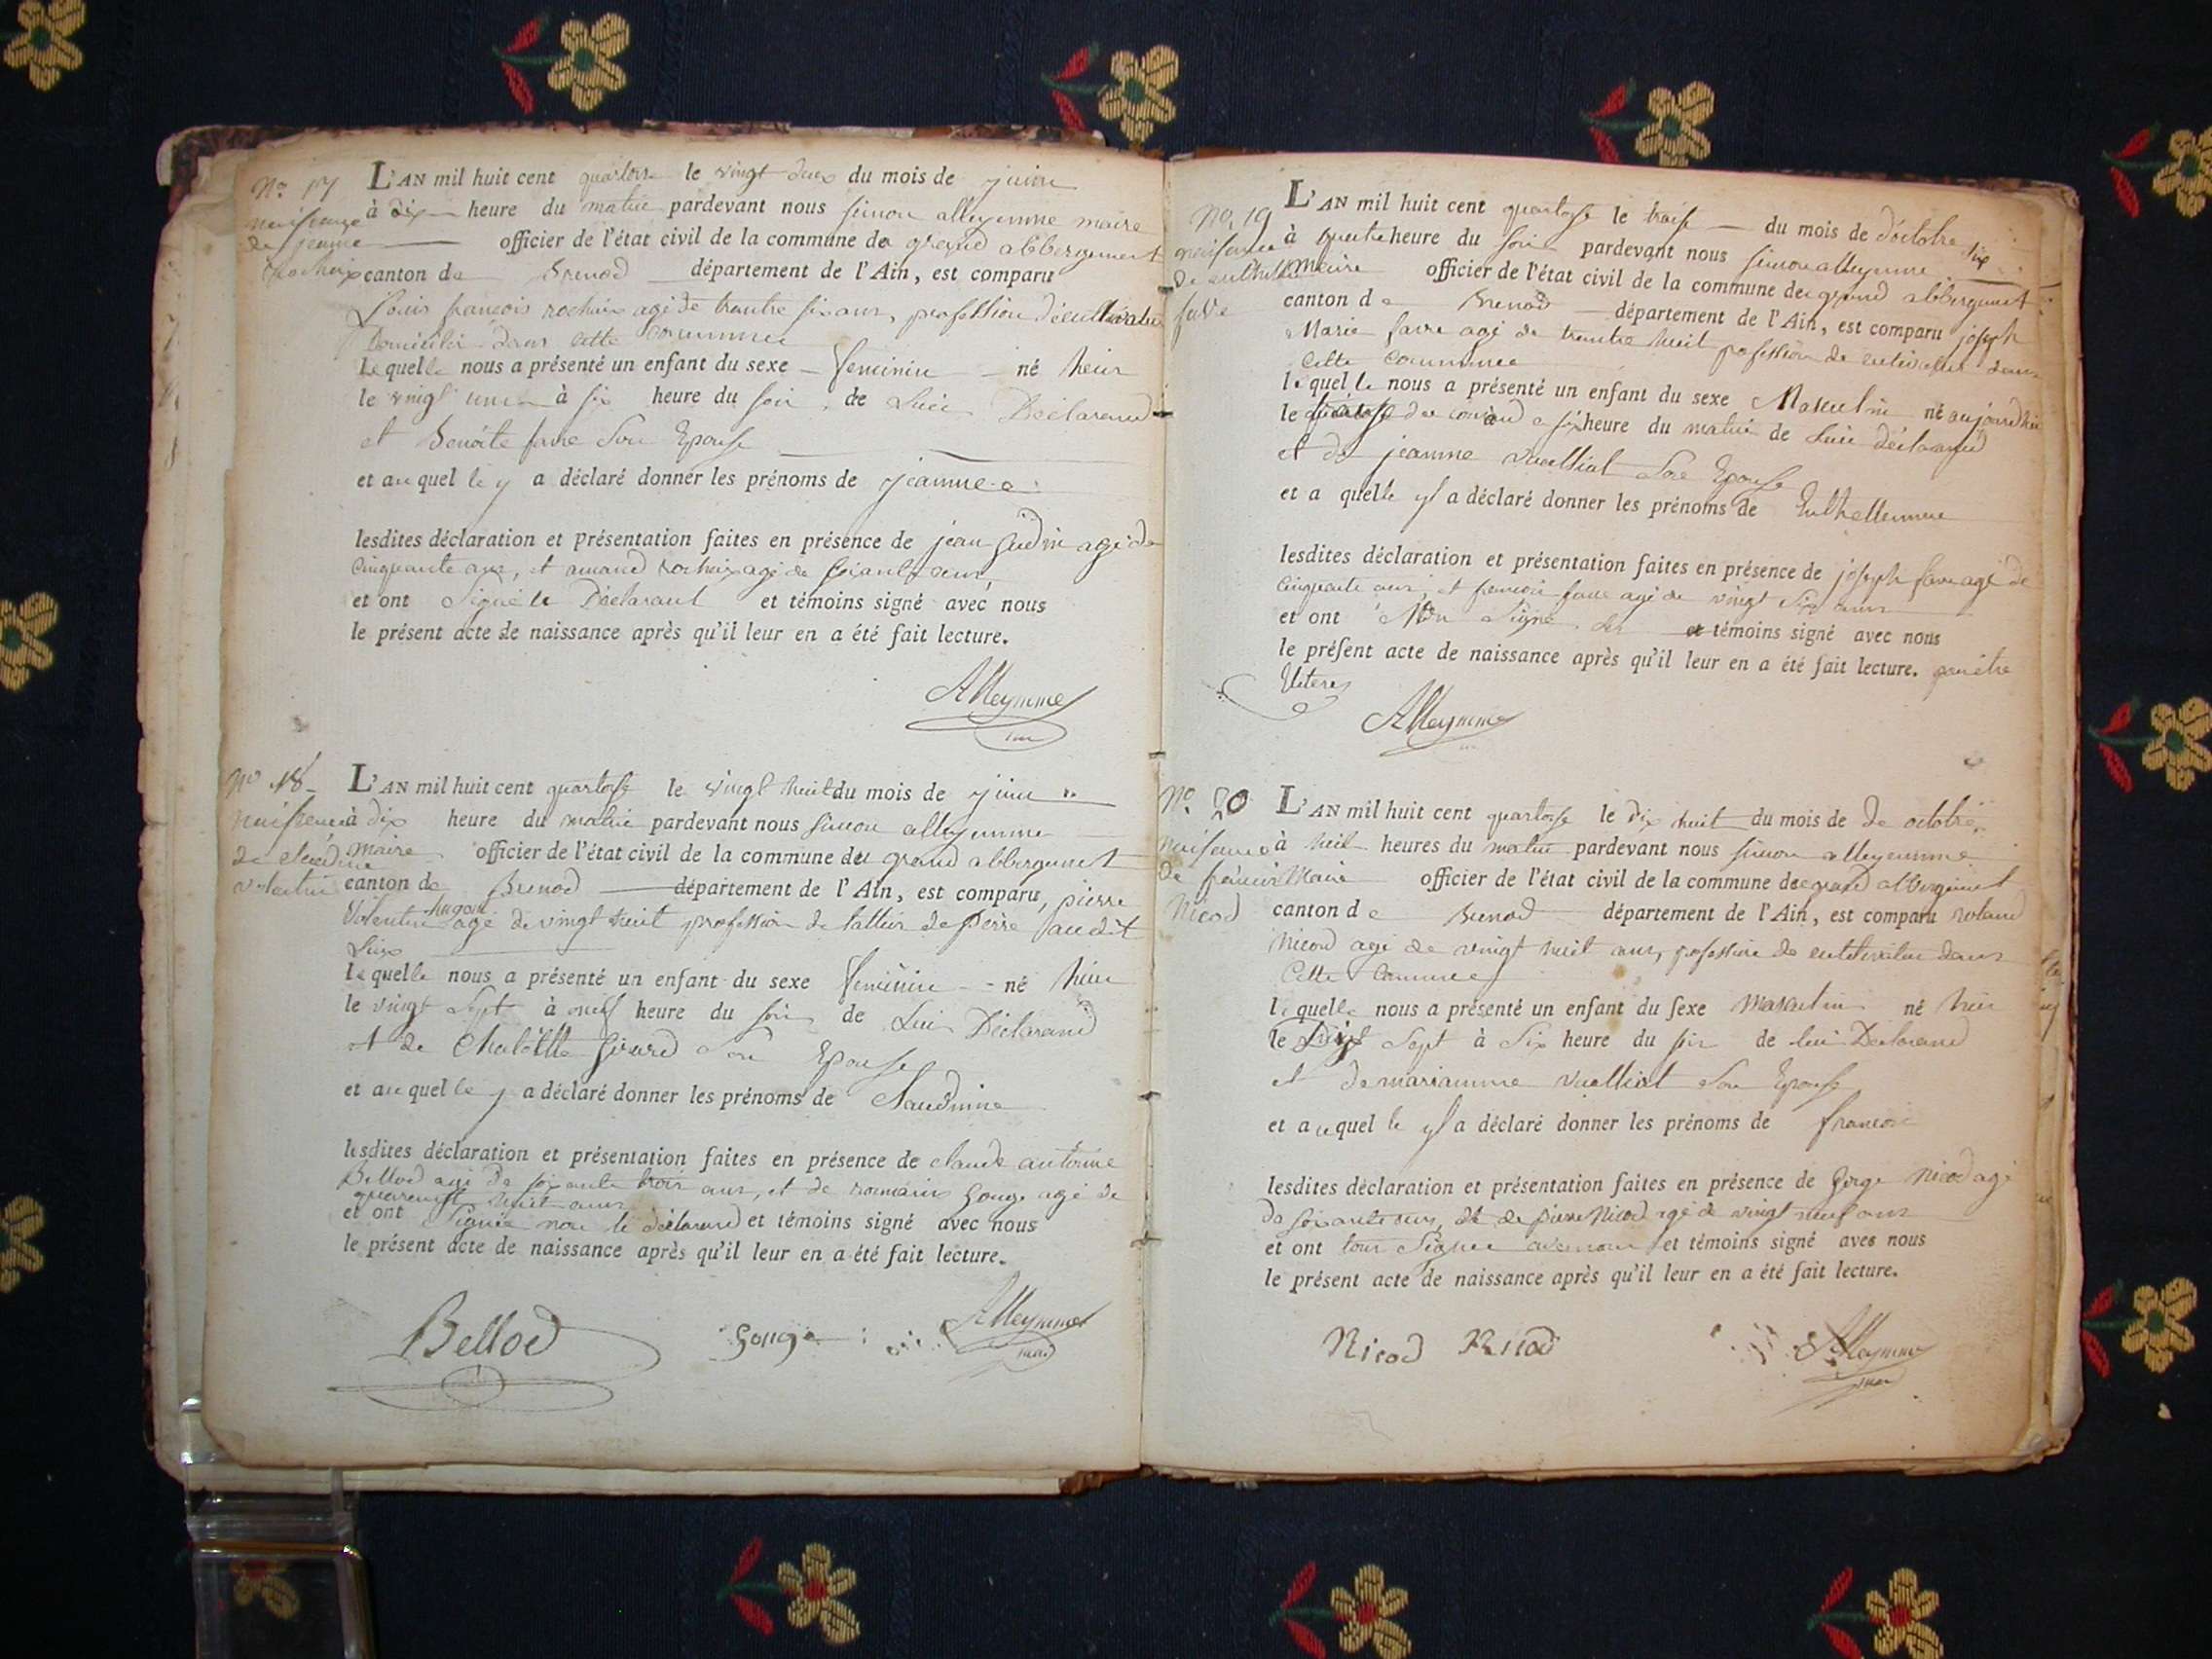 No 17
naissance
de jeanne
rochaix
L'AN mil huit cent quartorse le vingt deux du mois de juin
à dix heure du matin pardevant nous simon alleymme maire
officier de l'état civil de la commune de grand abbergement
canton de Brenod département de l'Ain, est comparu
Louis françois rochaix agé de trantre six ans, profession de cultivateur
domicilié dans cette commune
lequelle nous a présenté un enfant du sexe feminin né hier
le vingt un à six heure du soir de Lui Déclarand
et Benoite favre Son Epouse
et auquel le y a déclaré donner les prénoms de jeanne
lesdites déclaration et présentation faites en présence de jean agé de
Cinquante ans, et amand rochaix agé de ans,
et ont Signé le Déclarant et témoins signé avec nous
le présent acte de naissance après qu'il leur en a été fait lecture.
Alleymme
No 18
naissance
de
valentin
L'AN mil huit cent quartorse le vingt huit du mois de juin
à dix heure du matin pardevant nous simon alleymme
maire officier de l'état civil de la commune du grand abbergement
canton de Brenod département de l'Ain, est comparu, pierre
hugon
Valentin agé de vingt huit profession de tallieur de pierre audit
Lieux
lequelle nous a présenté un enfant du sexe feminin né hier
le vingt sept à neuf heure du soir de Lui Déclarand
et de Chalotte Girard Son Epouse
et auquel le y a déclaré donner les prénoms de Claudinne
lesdites déclaration et présentation faites en présence de claude antoine
Bellod agé de soixante trois ans, et de romain Gouge agé de
quarente huit ans
et ont Signé non le déclarand et témoins signé avec nous
le présent acte de naissance après qu'il leur en a été fait lecture.
Bellod Gouge Alleymme
No 19
naissance
de
favre
L'AN mil huit cent quartorse le traise du mois de d'octobre
à quatre heure du soir pardevant nous simon alleymme
maire officier de l'état civil de la commune de grand abbergement
canton de Brenod département de l'Ain, est comparu joseph
Marie favre agé de trantre huit profession de cultivateur dans
cette commune
lequel le nous a présenté un enfant du sexe Masculin né aujourdhui
le du courand a six heure du matin de Lui déclarand
et de jeanne vuilliat Son Epouse
et a quelle yl a déclaré donner les prénoms de
lesdites déclaration et présentation faites en présence de joseph favre agé de
Cinquante ans, et françois favre agé de vingt six ans
et ont Non Signé les et témoins signé avec nous
le présent acte de naissance après qu'il leur en a été fait lecture.
Alleymme
No 20
naissance
de françois
Nicod
L'AN mil huit cent quartorse le dix huit du mois de de octobre
à huit heures du matin pardevant nous simon alleymme
Maire officier de l'état civil de la commune de grand abbergement
canton de Brenod département de l'Ain, est comparu roland
Nicod agé de vingt huit ans, profession de cultivateur dans
Cette Commune
lequelle nous a présenté un enfant du sexe Masculin né hier
le Sept à Six heure du soir de lui Déclarand
et de marianne vuilliat Son Epouse
et auquel le yl a déclaré donner les prénoms de françois
lesdites déclaration et présentation faites en présence de Gorge Nicod agé
de soixante ans, et de pierre Nicod agé de vingt neuf ans
et ont tous Signer avec nous et témoins signé avec nous
le présent acte de naissance après qu'il leur en a été fait lecture.
Nicod Nicod Alleymme